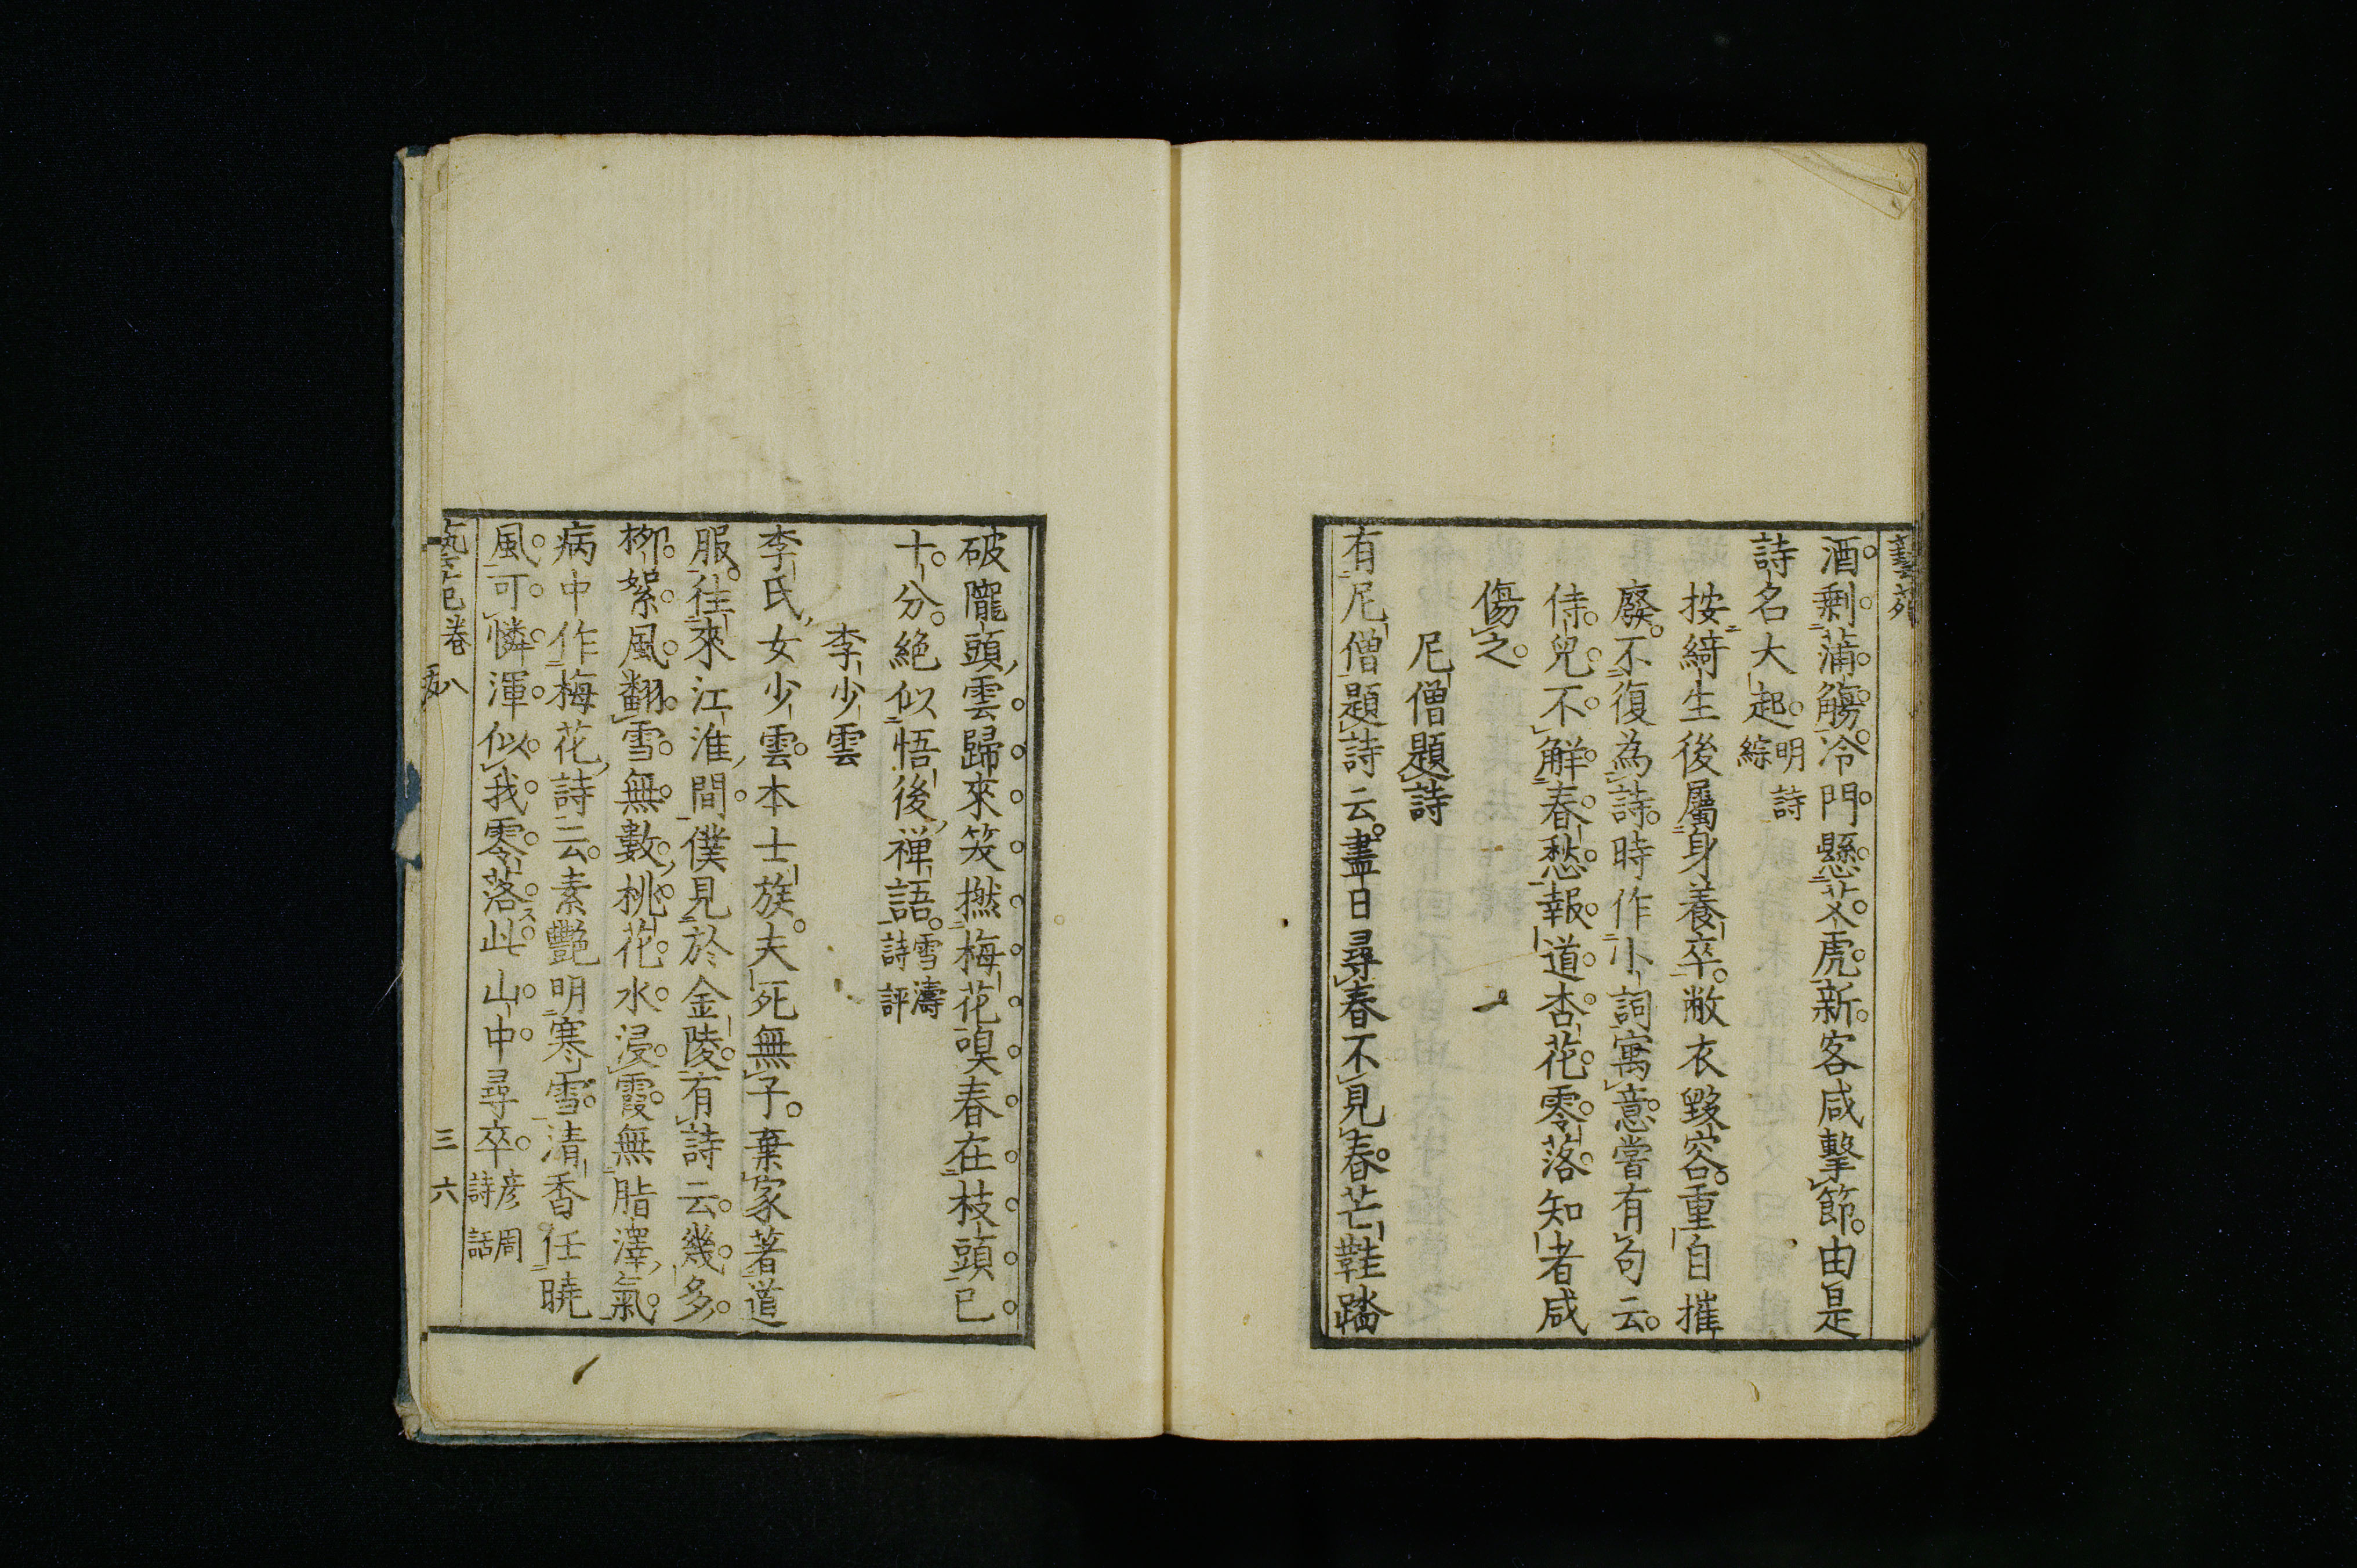 酒剩蒲觴冷門懸艾虎新客咸擊節由是
詩名大起明詩綜
按綺生後屬身養卒敝衣毀容重自摧
廢不復為詩時作小詞寓意嘗有句云
侍兒不解春愁報道杏花零落知者咸
傷之
尼僧題詩
有尼僧題詩云盡日尋春不見春芒鞋踏
破隴頭雲歸來笑撚梅花嗅春在枝頭已
十分絕似悟後禅語雪濤詩評
李少雲
李氏女少雲本士族夫死無子棄家著道
服往來江淮間僕見於金陵有詩云幾多
柳絮風翻雪無數桃花水浸霞無脂澤氣
病中作梅花詩云素艷明寒雪清香任曉
風可憐渾似我零落此山中尋卒彦周詩話
卷八
三六